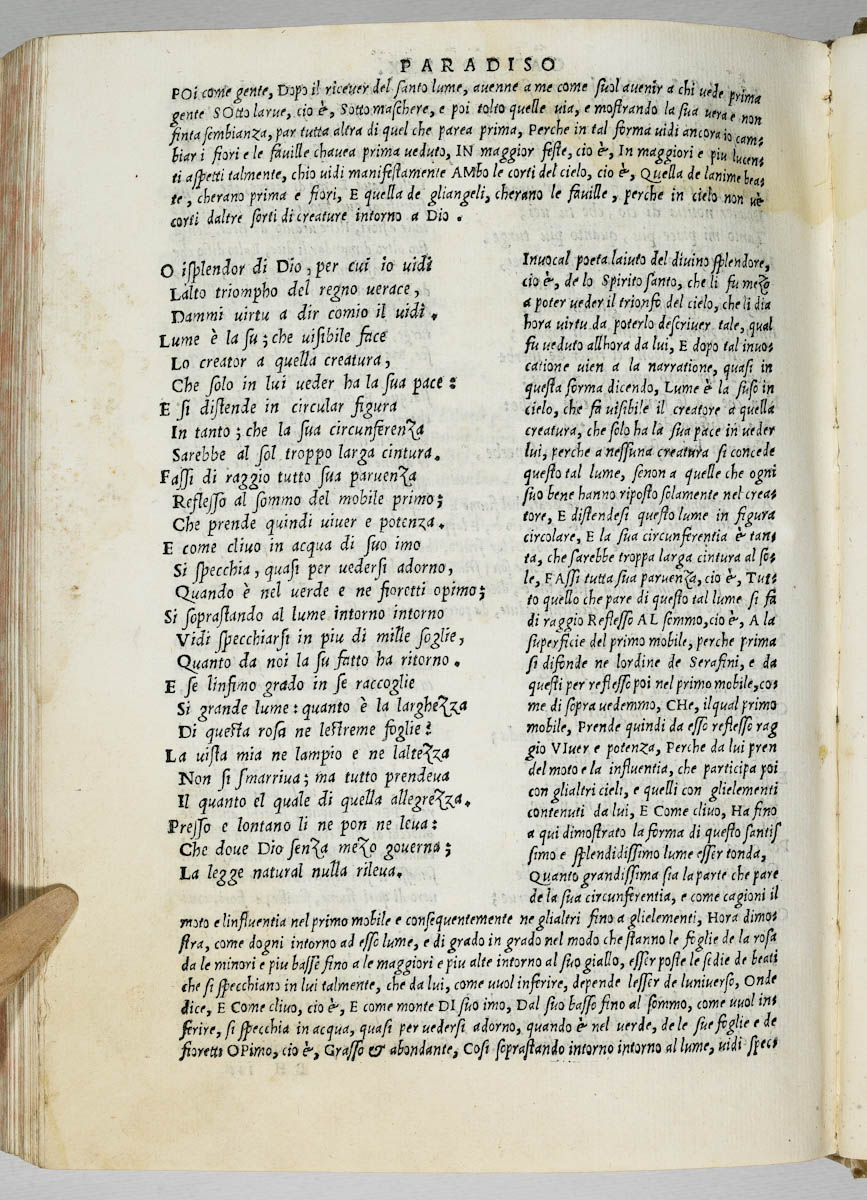 PARADISO
POi come gente, Dopo il ricever del santo lume, avenne a me come suol avenir a chi vede prima
gente SOtto larve, cio è, Sotto maschere, e poi tolto quelle via, e mostrando la sua vera e non
finta sembianza, par tutta altra di quel che parea prima, Perche in tal forma vidi ancora io cam-
biar i fiori e le faville chavea prima veduto, IN maggior feste, cio è, In maggiori e piu lucen-
ti aspetti talmente, chio vidi manifestamente AMbo le corti del cielo, cio è, Quella de lanime bea-
te, cherano prima e fiori, E quella de gliangeli, cherano le faville, perche in cielo non vè
corti daltre sorti di creature intorno a Dio.
O isplendor di Dio, per cui io vidi
Lalto triompho del regno verace,
Dammi virtu a dir comio il vidi.
Lume è la su; che visibile face
Lo creator a quella creatura,
Che solo in lui veder ha la sua pace:
E si distende in circular figura
In tanto; che la sua circunferenza
Sarebbe al sol troppo larga cintura.
Fassi di raggio tutto sua parvenza
Reflesso al sommo del mobile primo;
Che prende quindi viver e potenza.
E come clivo in acqua di suo imo
Si specchia, quasi per vedersi adorno,
Quando è nel verde e ne fioretti opimo;
Si soprastando al lume intorno intorno
Vidi specchiarsi in piu di mille soglie,
Quanto da noi la su fatto ha ritorno.
E se linfimo grado in se raccoglie
Si grande lume: quanto è la larghezza
Di questa rosa ne lestreme foglie?
La vista mia ne lampio e ne laltezza
Non si smarriva; ma tutto prendeva
Il quanto el quale di quella allegrezza.
Presso e lontano li ne pon ne leva:
Che dove Dio senza mezo governa;
La legge natural nulla rileva.
Invocal poeta laiuto del divino splendore,
cio è, de lo Spirito santo, che li fu mezo
a poter veder il trionfo del cielo, che li dia
hora virtu da poterlo descriver tale, qual
fu veduto allhora da lui, E dopo tal invo-
catione vien a la narratione, quasi in
questa forma dicendo, Lume è la suso in
cielo, che fa visibile il creatore a quella
creatura, che solo ha la sua pace in veder
lui, perche a nessuna creatura si concede
questo tal lume, senon a quelle che ogni
suo bene hanno riposto solamente nel crea-
tore, E distendesi questo lume in figura
circolare, E la sua circunferentia è tan-
ta, che sarebbe troppa larga cintura al so-
le, FAssi tutta sua parvenza, cio è, Tut-
to quello che pare di questo tal lume si fa
di raggio Reflesso AL sommo, cio è, A la
superficie del primo mobile, perche prima
si difonde ne lordine de Serafini, e da
questi per reflesso poi nel primo mobile, co-
me di sopra vedemmo, CHe, ilqual primo
mobile, Prende quindi da esso reflesso rag
gio VIver e potenza, Perche da lui pren
del moto e la influentia, che participa poi
con glialtri cieli, e quelli con glielementi
contenuti da lui, E Come clivo, Ha fino
a qui dimostrato la forma di questo santis
simo e splendidissimo lume esser tonda,
Quanto grandissima sia la parte che pare
de la sua circunferentia, e come cagioni il
moto e linfluentia nel primo mobile e consequentemente ne glialtri fino a glielementi, Hora dimo-
stra, come dogni intorno ad esso lume, e di grado in grado nel modo che stanno le foglie de la rosa
da le minori e piu basse fino a le maggiori e piu alte intorno al suo giallo, esser poste le sedie de beati
che si specchiano in lui talmente, che da lui, come vuol inferire, depende lesser de luniverso, Onde
dice, E Come clivo, cio è, E come monte DI suo imo, Dal suo basso fino al sommo, come vuol in-
ferire, si specchia in acqua, quasi per vedersi adorno, quando è nel verde, de le sue foglie e de
fioretti OPimo, cio è, Grasso & abondante, Cosi soprastando intorno intorno al lume, vidi spec-